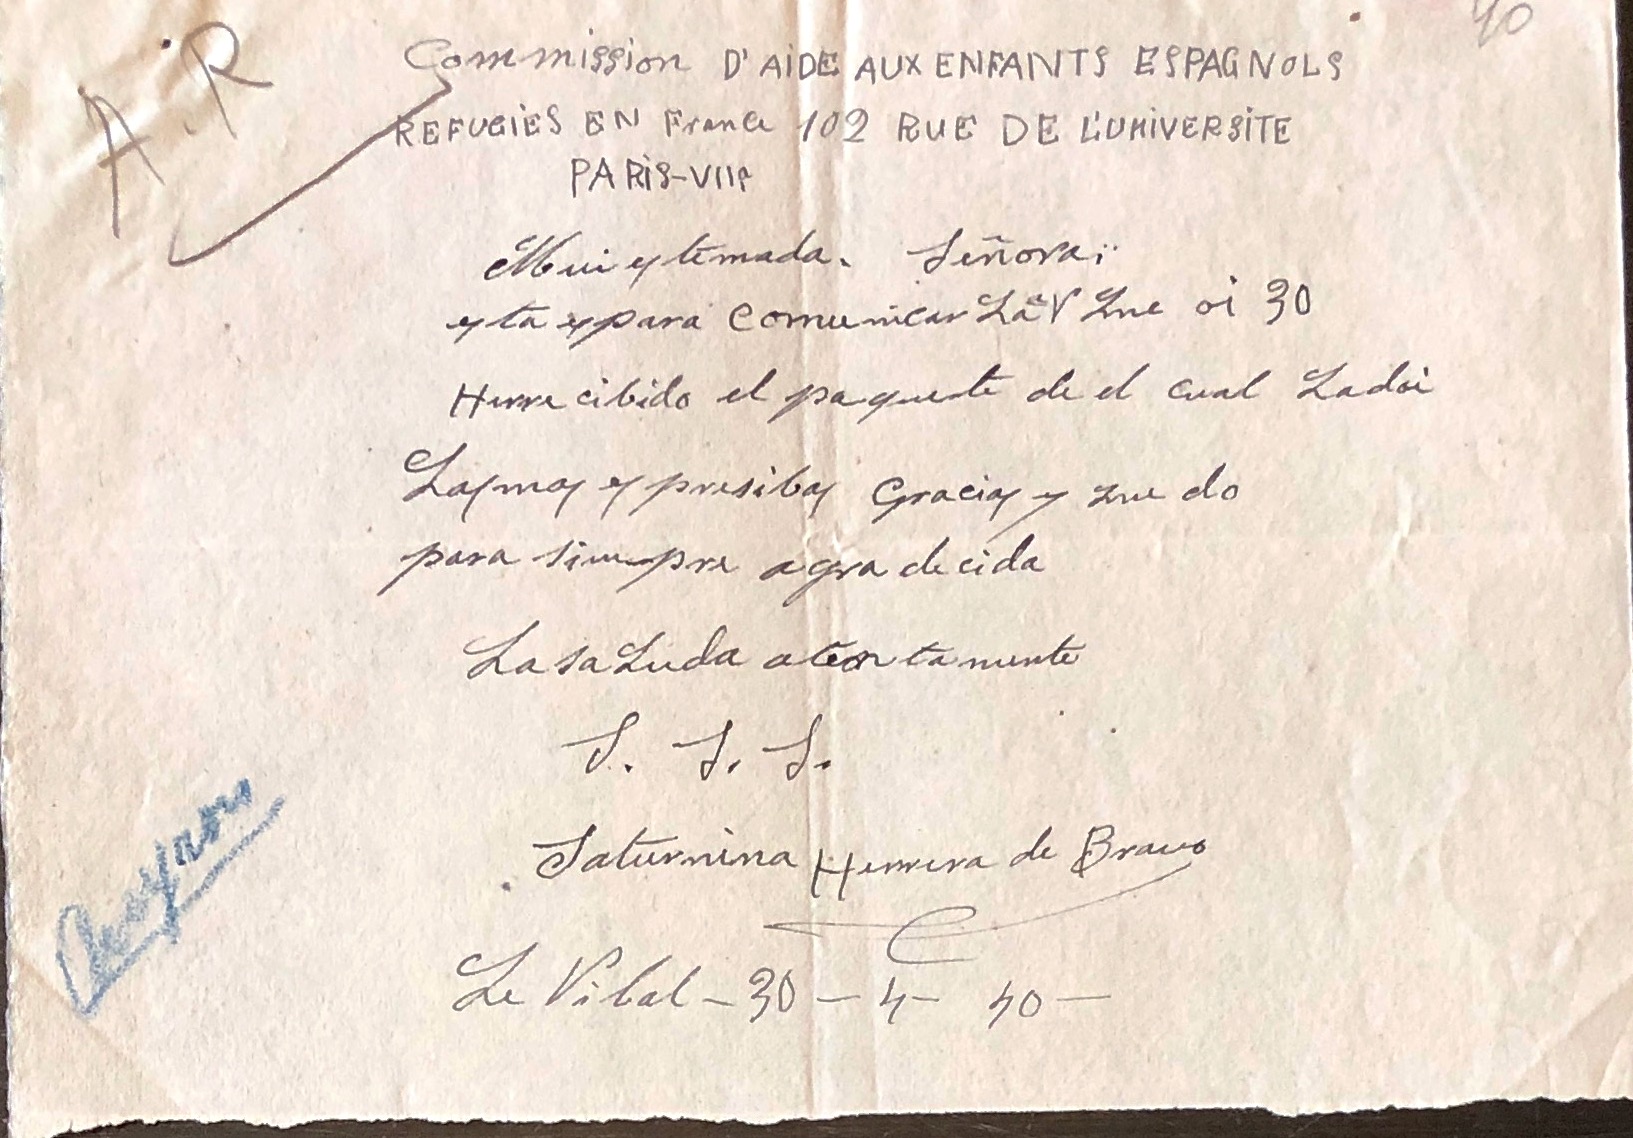 40
A.R
Commission D'AIDE AUX ENFANTS ESPAGNOLS
REFUGIES EN France 102 RUE DE L'UNIVERSITE
PARIS-VIIe
Mui estemada. Señora;
esta es para comunicar La V Que oi 30
Herrecibido el paquete de el cual Ladoi
Lasmas espresibas Gracias y quedo
para siempre agradecida
La saLuda atentamente
S. S. S.
Saturnina Herrera de Bravo
Le Vibal - 30 - 4 - 40 -